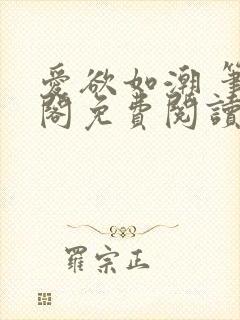 愛欲如潮 筆
閣免費閱讀
羅宗正